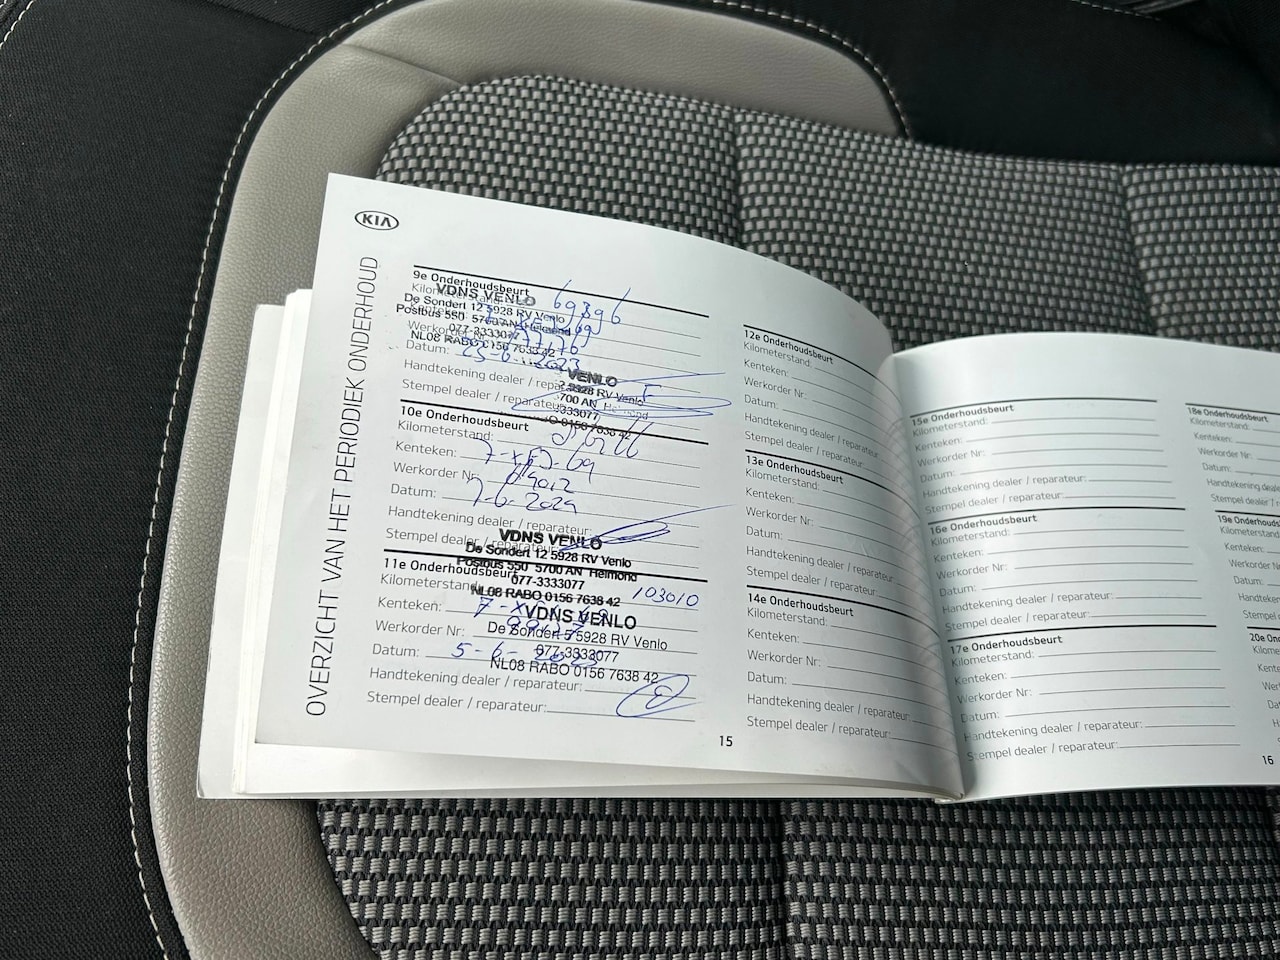 KIA
OVERZICHT VAN HET PERIODIEK ONDERHOUD
9e Onderhoudsbeurt
Kilometerstand: 69396
VDNS VENLO
De Sondert 12 5928 RV Venlo
Postbus 550 5700 AN Helmond
077-3333077
NL08 RABO 0156 7638 42
Datum:
Handtekening dealer / reparateur:
Stempel dealer / reparateur:
VENLO
5928 RV Venlo
5700 AN Helmond
3333077
0156 7638 42
10e Onderhoudsbeurt
Kilometerstand:
Kenteken:
Werkorder Nr:
Datum: 7-6-2024
Handtekening dealer / reparateur:
Stempel dealer / reparateur:
VDNS VENLO
De Sondert 12 5928 RV Venlo
Postbus 550 5700 AN Helmond
077-3333077
NL08 RABO 0156 7638 42
11e Onderhoudsbeurt
Kilometerstand: 103010
Kenteken:
VDNS VENLO
De Sondert 5928 RV Venlo
077-3333077
NL08 RABO 0156 7638 42
Werkorder Nr:
Datum: 5-6-
Handtekening dealer / reparateur:
Stempel dealer / reparateur:
12e Onderhoudsbeurt
Kilometerstand:
Kenteken:
Werkorder Nr:
Datum:
Handtekening dealer / reparateur
Stempel dealer / reparateur:
13e Onderhoudsbeurt
Kilometerstand:
Kenteken:
Werkorder Nr:
Datum:
Handtekening dealer / reparateur:
Stempel dealer / reparateur:
14e Onderhoudsbeurt
Kilometerstand:
Kenteken:
Werkorder Nr:
Datum:
Handtekening dealer / reparateur:
Stempel dealer / reparateur:
15
15e Onderhoudsbeurt
Kilometerstand:
Kenteken:
Werkorder Nr:
Datum:
Handtekening dealer / reparateur:
Stempel dealer / reparateur:
16e Onderhoudsbeurt
Kilometerstand:
Kenteken:
Werkorder Nr:
Datum:
Handtekening dealer / reparateur:
Stempel dealer / reparateur:
17e Onderhoudsbeurt
Kilometerstand:
Kenteken:
Werkorder Nr:
Datum:
Handtekening dealer / reparateur:
Stempel dealer / reparateur:
18e Onderhoudsbeurt
Kilometerstand:
Kenteken:
Werkorder Nr:
Datum:
Handtekening deale
Stempel dealer / re
19e Onderhouds
Kilometerstand:
Kenteken:
Werkorder
Datum:
Handteken
Stempel de
20e On
Kilome
Kente
Werk
Dat
Ha
16